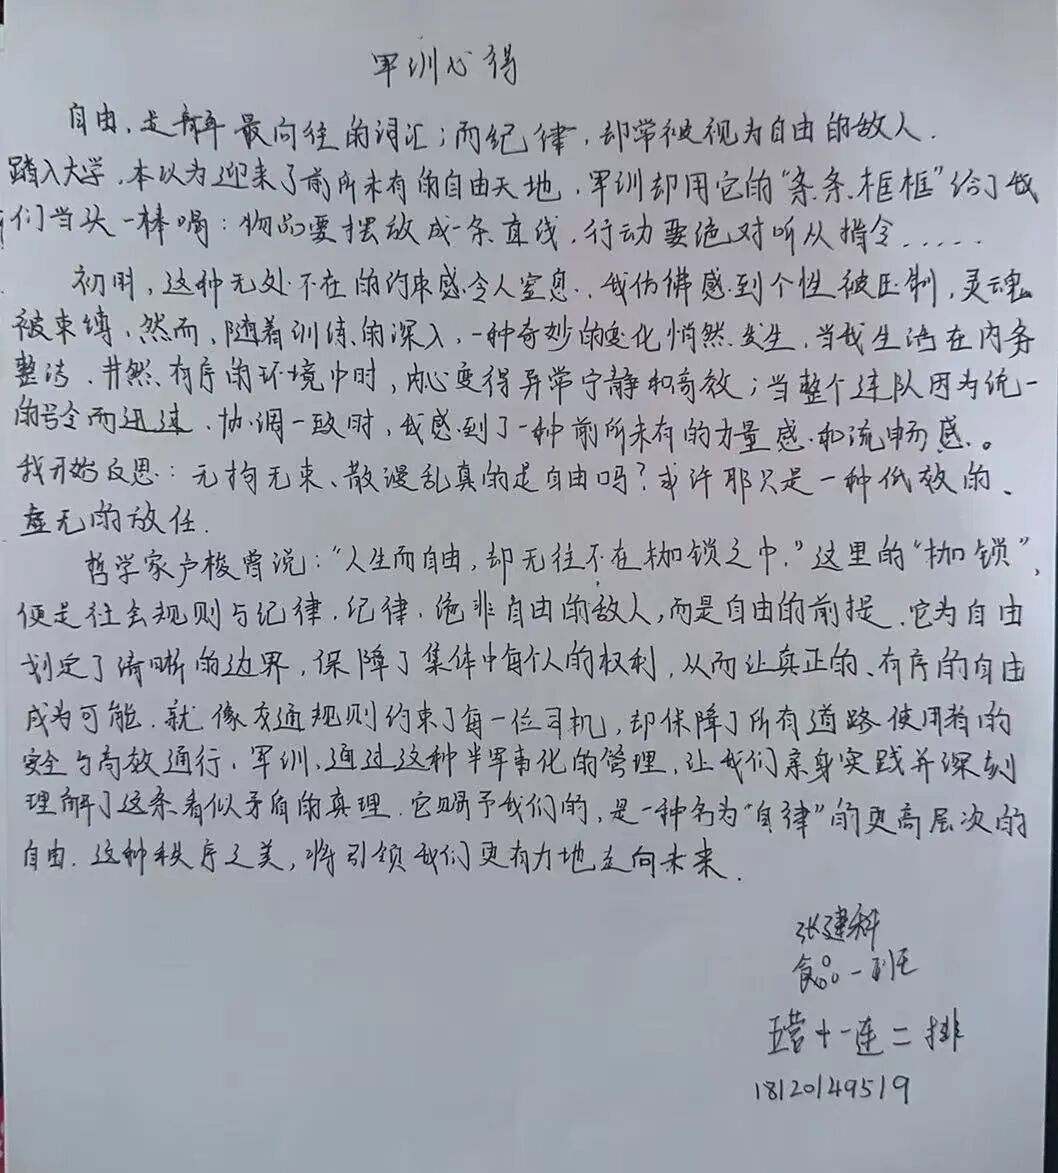 军训心得
自由，是青年最向往的词汇；而纪律，却常被视为自由的敌人.
踏入大学，本以为迎来了前所未有的自由天地，军训却用它的“条条框框”给了我
们当头一棒喝：物品要摆放成一条直线，行动要绝对听从指令......
初期，这种无处不在的约束感令人窒息，我仿佛感到个性被压制，灵魂
被束缚，然而，随着训练的深入，一种奇妙的变化悄然发生，当我生活在内务
整洁、井然有序的环境中时，内心变得异常宁静和高效；当整个连队因为统一
的号令而迅速、协调一致时，我感到了一种前所未有的力量感和流畅感。
我开始反思：无拘无束、散漫乱真的是自由吗？或许那只是一种低效的、
虚无的放任.
哲学家卢梭曾说：“人生而自由，却无往不在枷锁之中.”这里的“枷锁”，
便是社会规则与纪律.纪律，绝非自由的敌人，而是自由的前提.它为自由
划定了清晰的边界，保障了集体中每个人的权利，从而让真正的、有序的自由
成为可能.就像交通规则约束了每一位司机，却保障了所有道路使用者的
安全与高效通行.军训，通过这种半军事化的管理，让我们亲身实践并深刻
理解了这条看似矛盾的真理.它赐予我们的，是一种名为“自律”的更高层次的
自由.这种秩序之美，将引领我们更有力地走向未来.
张建科
食品一班
五营十一连二排
18120149519